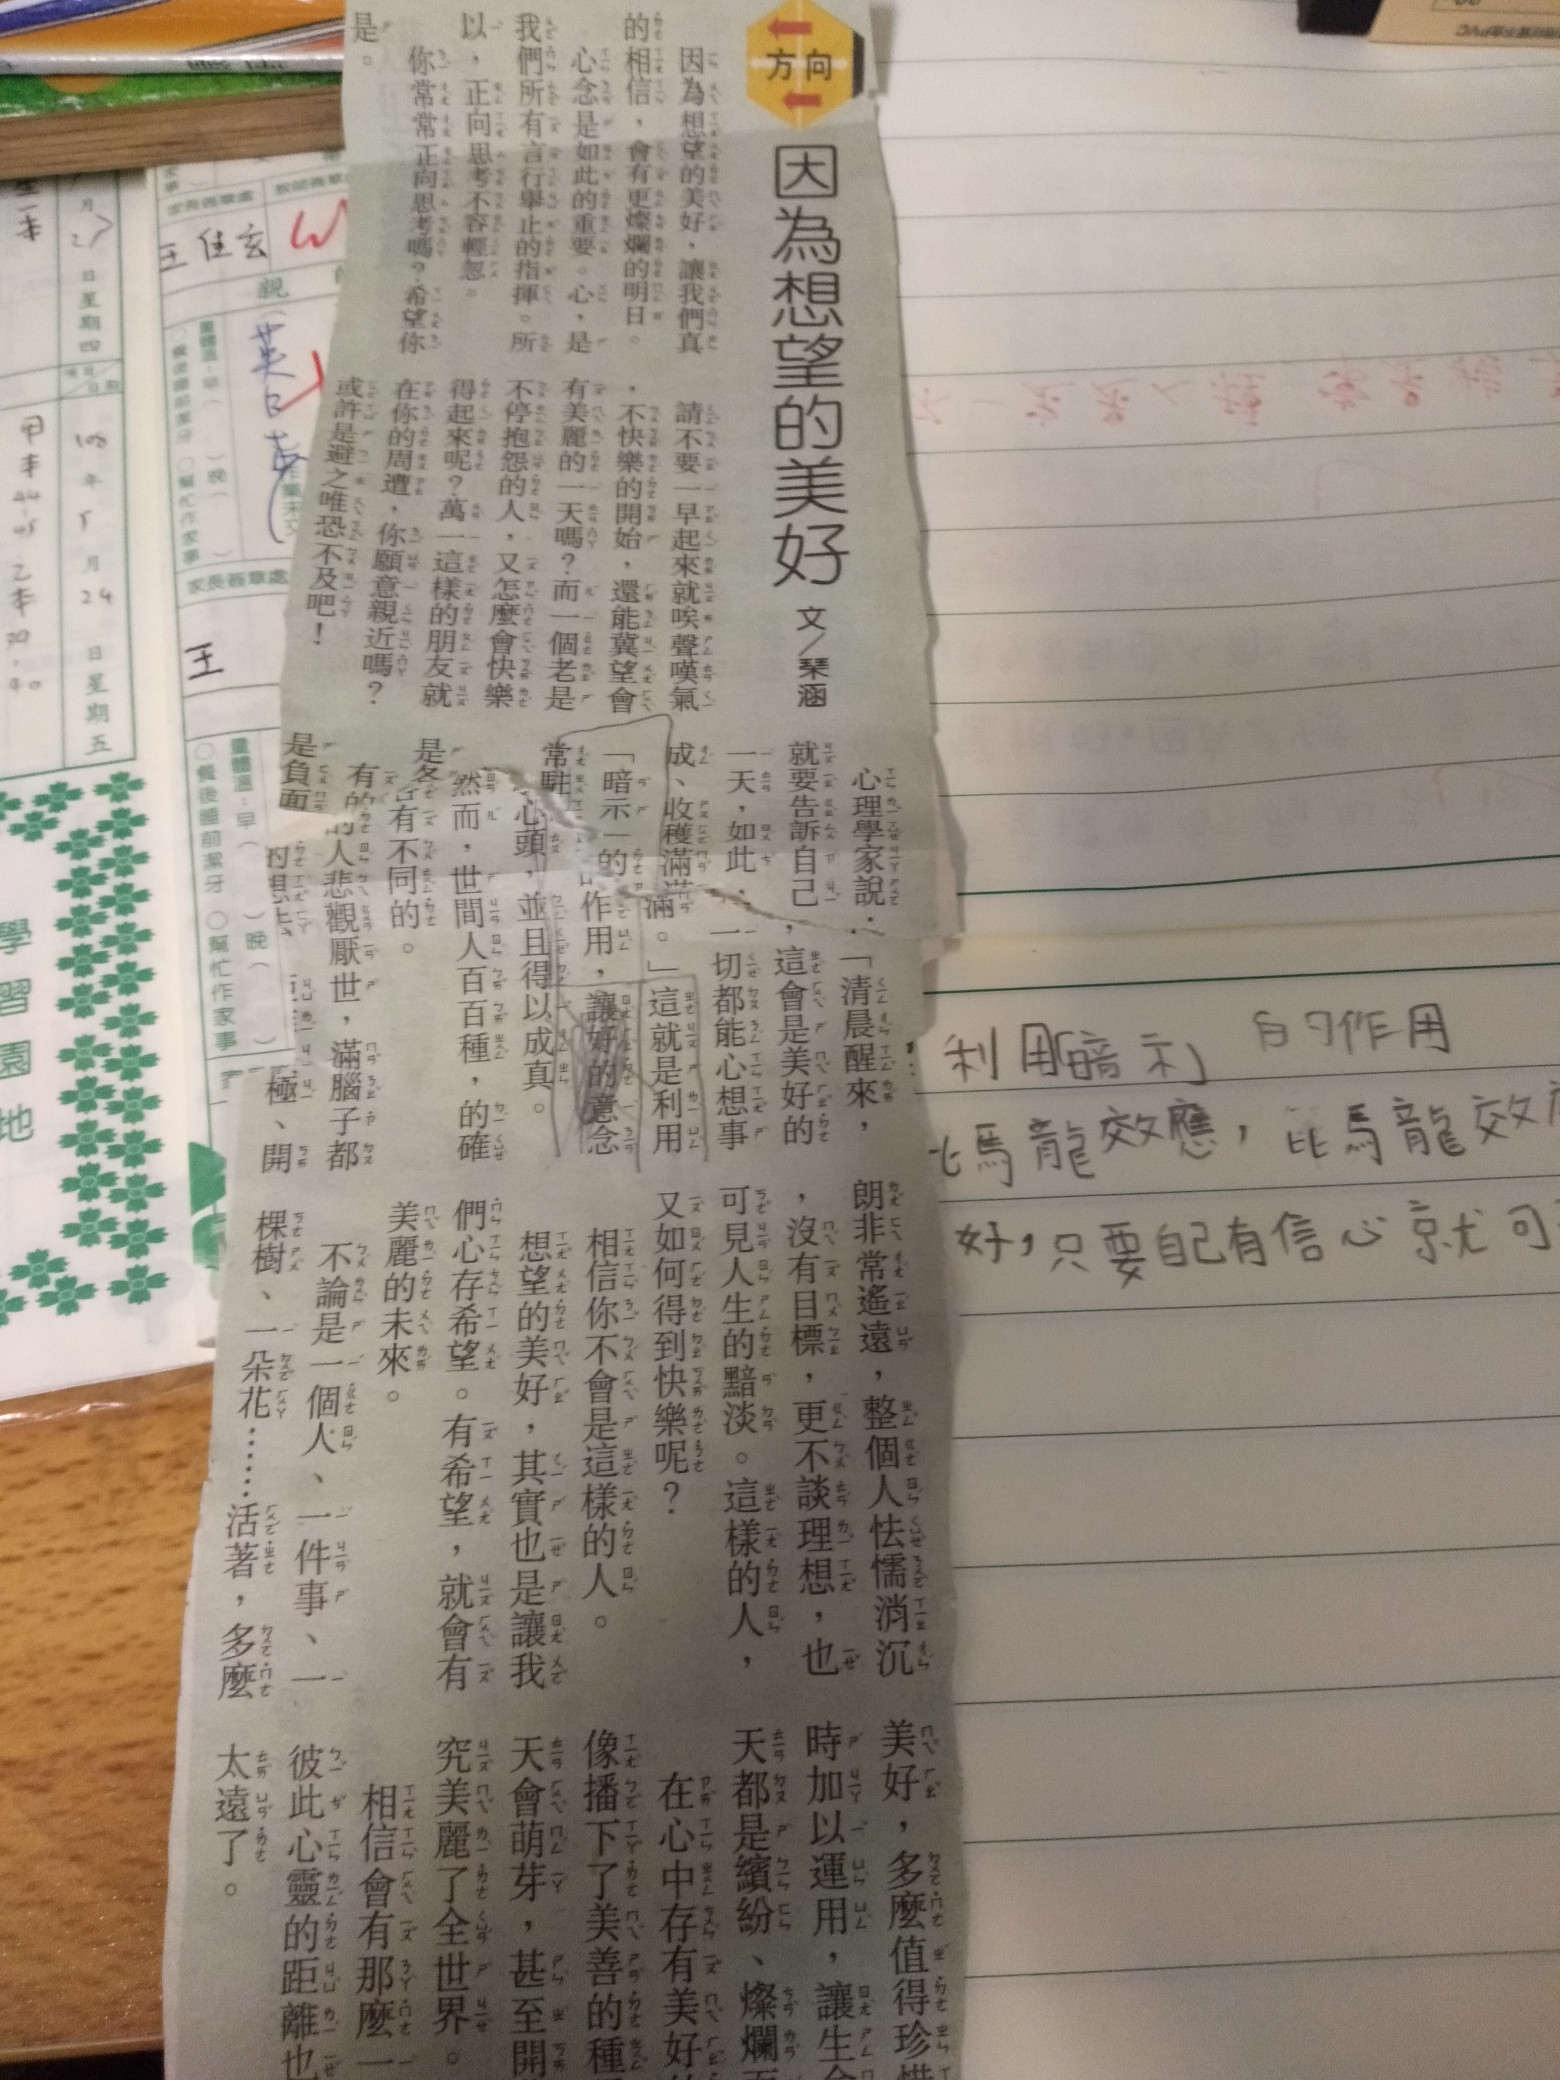 方向
因為想望的美好
文／琹涵
因為想望的美好，讓我們真
的相信，會有更燦爛的明日。
心念是如此的重要。心，是
我們所有言行舉止的指揮。所
以，正向思考不容輕忽。
你常常正向思考嗎？希望你
是。
請不要一早起來就唉聲嘆氣
，不快樂的開始，還能冀望會
有美麗的一天嗎？而一個老是
不停抱怨的人，又怎麼會快樂
得起來呢？萬一這樣的朋友就
在你的周遭，你願意親近嗎？
或許是避之唯恐不及吧！
心理學家說：「清晨醒來，
就要告訴自己，這會是美好的
一天，如此，一切都能心想事
成、收穫滿滿。」這就是利用
「暗示」的作用，讓好的意念
常駐心頭，並且得以成真。
然而，世間人百百種，的確
是各有不同的。
有的人悲觀厭世，滿腦子都
是負面的想法 極、開
朗非常遙遠，整個人怯懦消沉
，沒有目標，更不談理想，也
可見人生的黯淡。這樣的人，
又如何得到快樂呢？
相信你不會是這樣的人。
想望的美好，其實也是讓我
們心存希望。有希望，就會有
美麗的未來。
不論是一個人、一件事、一
棵樹、一朵花，……活著，多麼
美好，多麼值得珍惜
時加以運用，讓生命
天都是繽紛、燦爛
在心中存有美好
像播下了美善的種
天會萌芽，甚至開
究美麗了全世界。
相信會有那麼一
彼此心靈的距離也
太遠了。
利用暗示的作用
比馬龍效應，比馬龍效應
好，只要自己有信心就可
王佳玄
王
月
27
日
星
期
四
108
年
5
月
24
日
星
期
五
家長簽章處
教師簽章
親
量體溫：早（ ）晚（ ）
○餐後睡前潔牙 ○幫忙作家事
家長簽章處
量體溫：早（ ）晚（ ）
○餐後睡前潔牙 ○幫忙作家事
甲本
44-45
乙本
學習園地